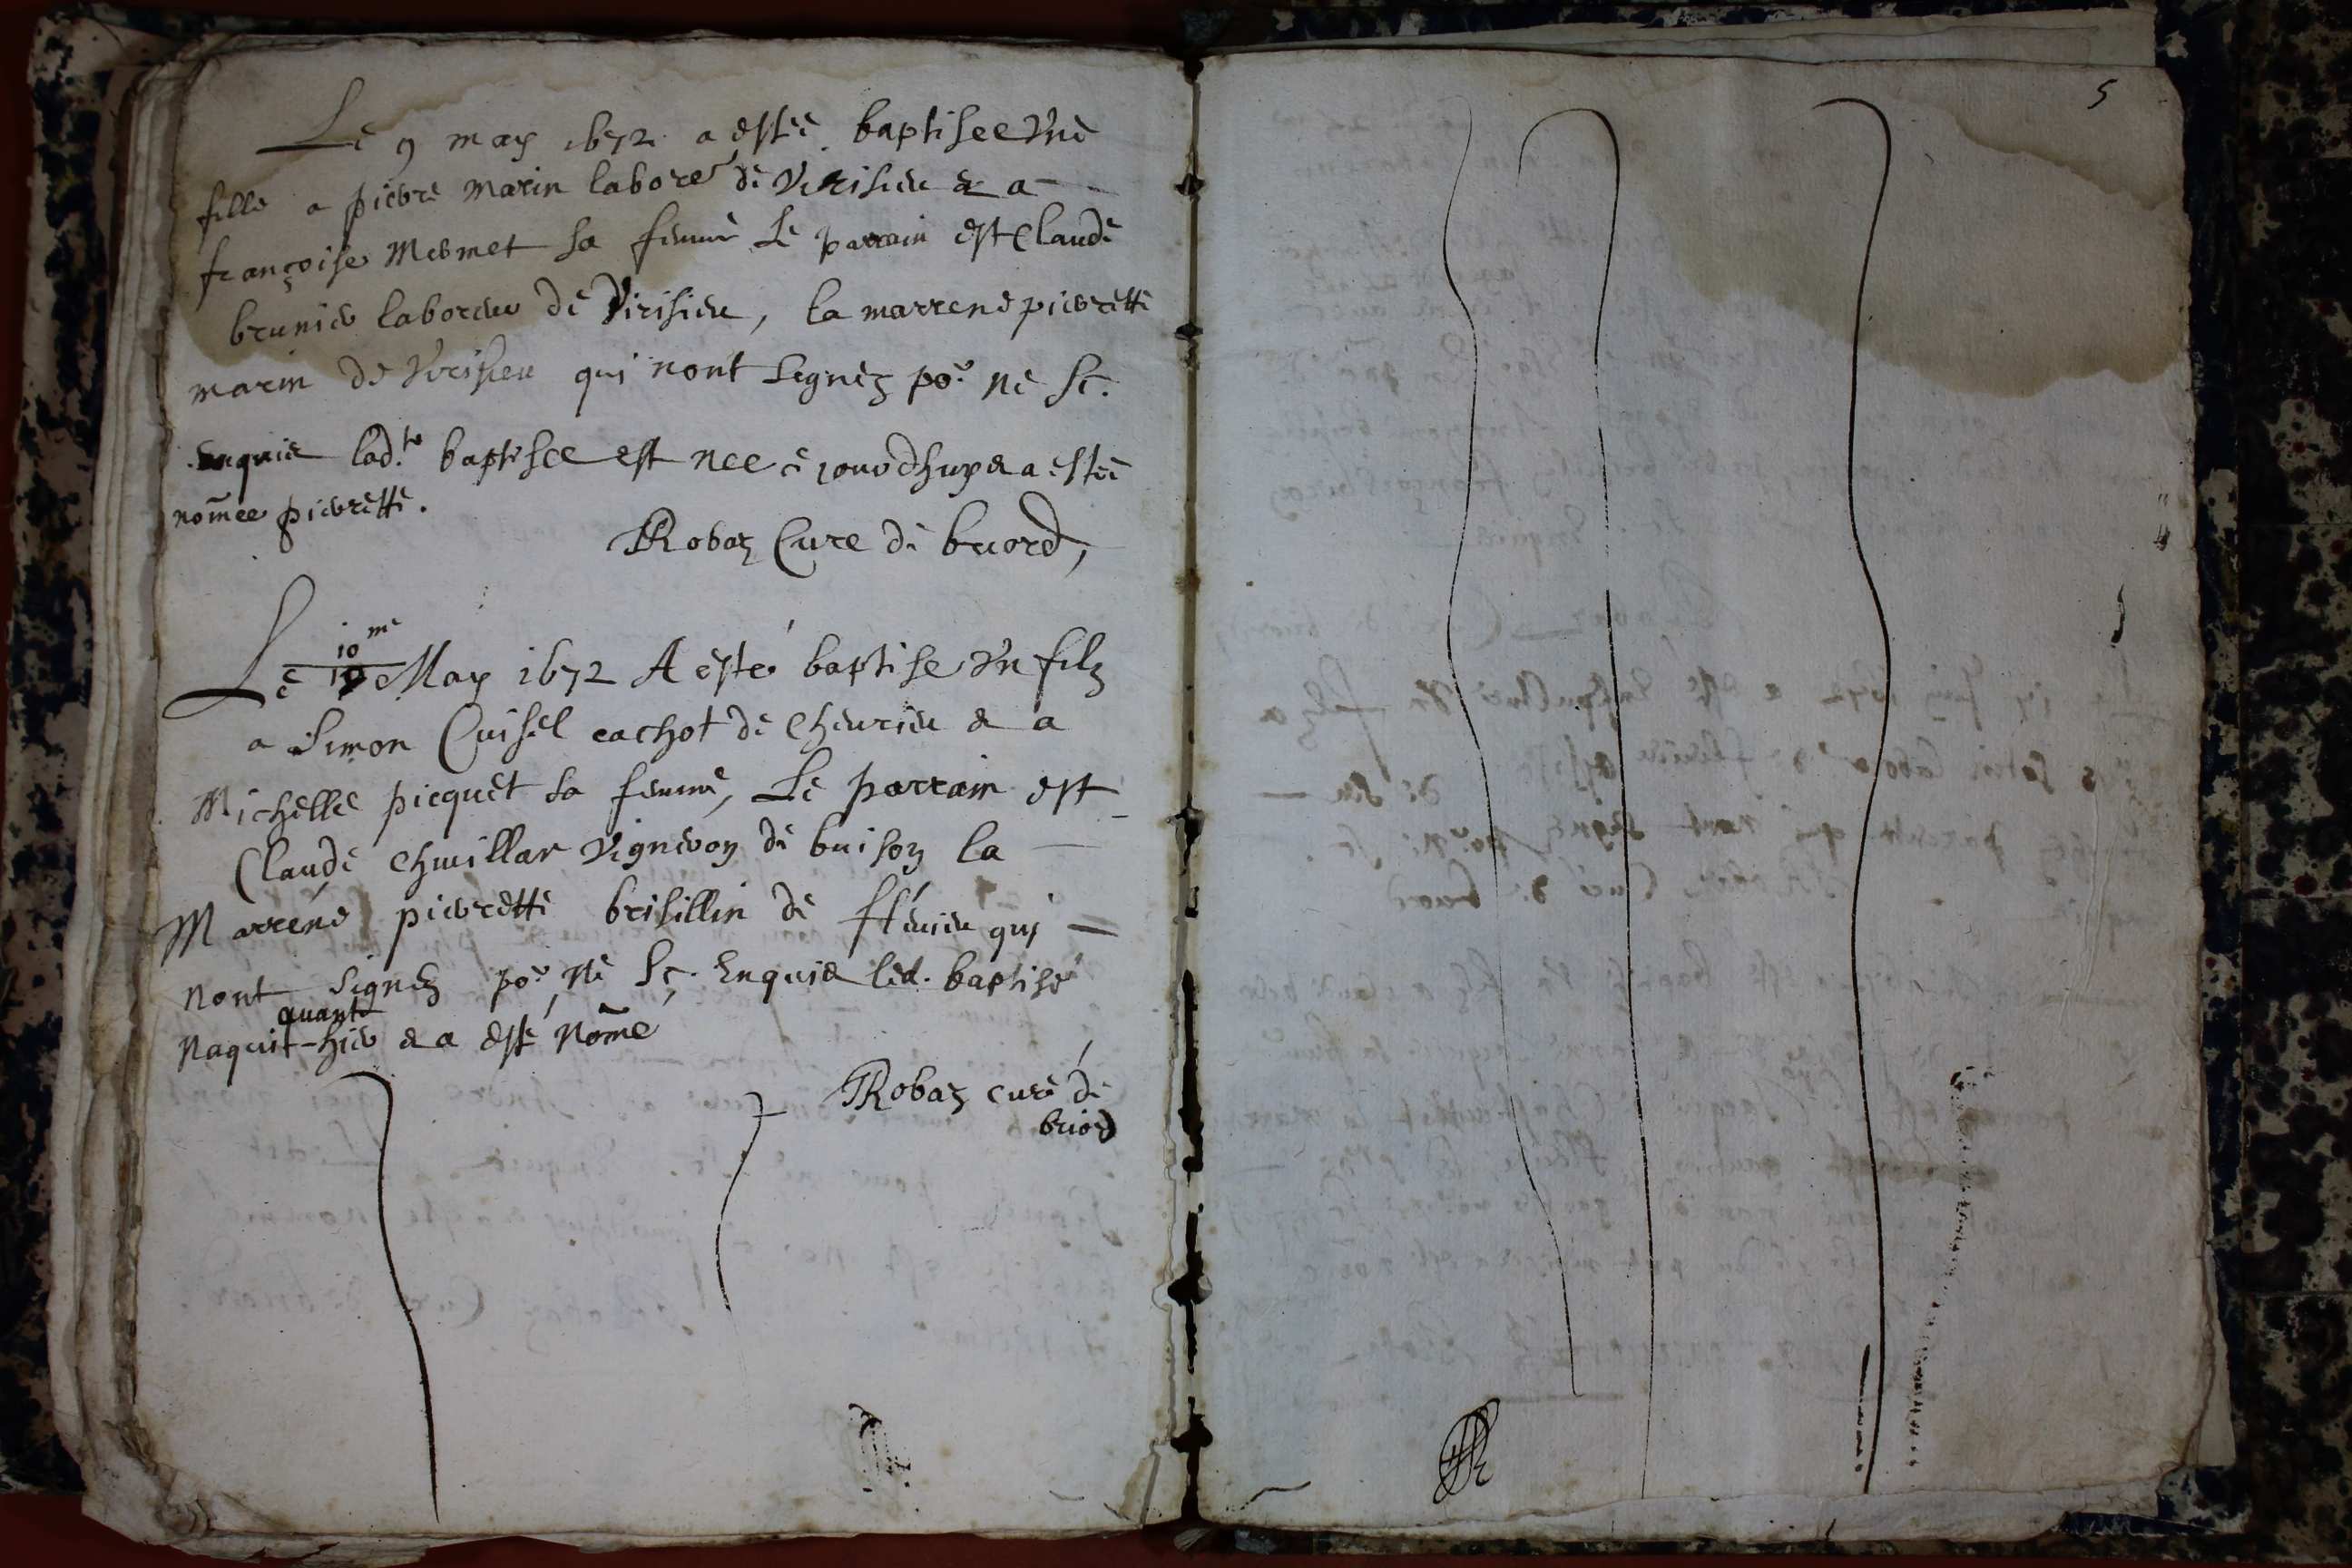 Le 9 may 1672 a estée baptisee Une
fille a pierre marin labore.r de Virisieu & a
françoise Mermet sa femme Le parrain est Claude
brunier laboreur de Virisieu, la marrene pierrette
marin de Virisieu qui nont Signez po.r ne Sc.
Enquis lad.te baptisee est nee ce jourdhuy & a estée
nom̃ee pierrette.
Robaz Cure de briord,
10.me
Le 19 May 1672 A esté baptisé Un filz
a Simon Cuisel cachot de cheurieu & a
Michelle picquet sa femme, Le parrain est
Claude chuillar Vigneron de buison la
Marrene pierrette brisillin de fléuieu qui
nont Signez po.r ne Sç. Enquis led. baptisé
auant
naquit hier & a esté nom̃e
Robaz curé de
briord
5